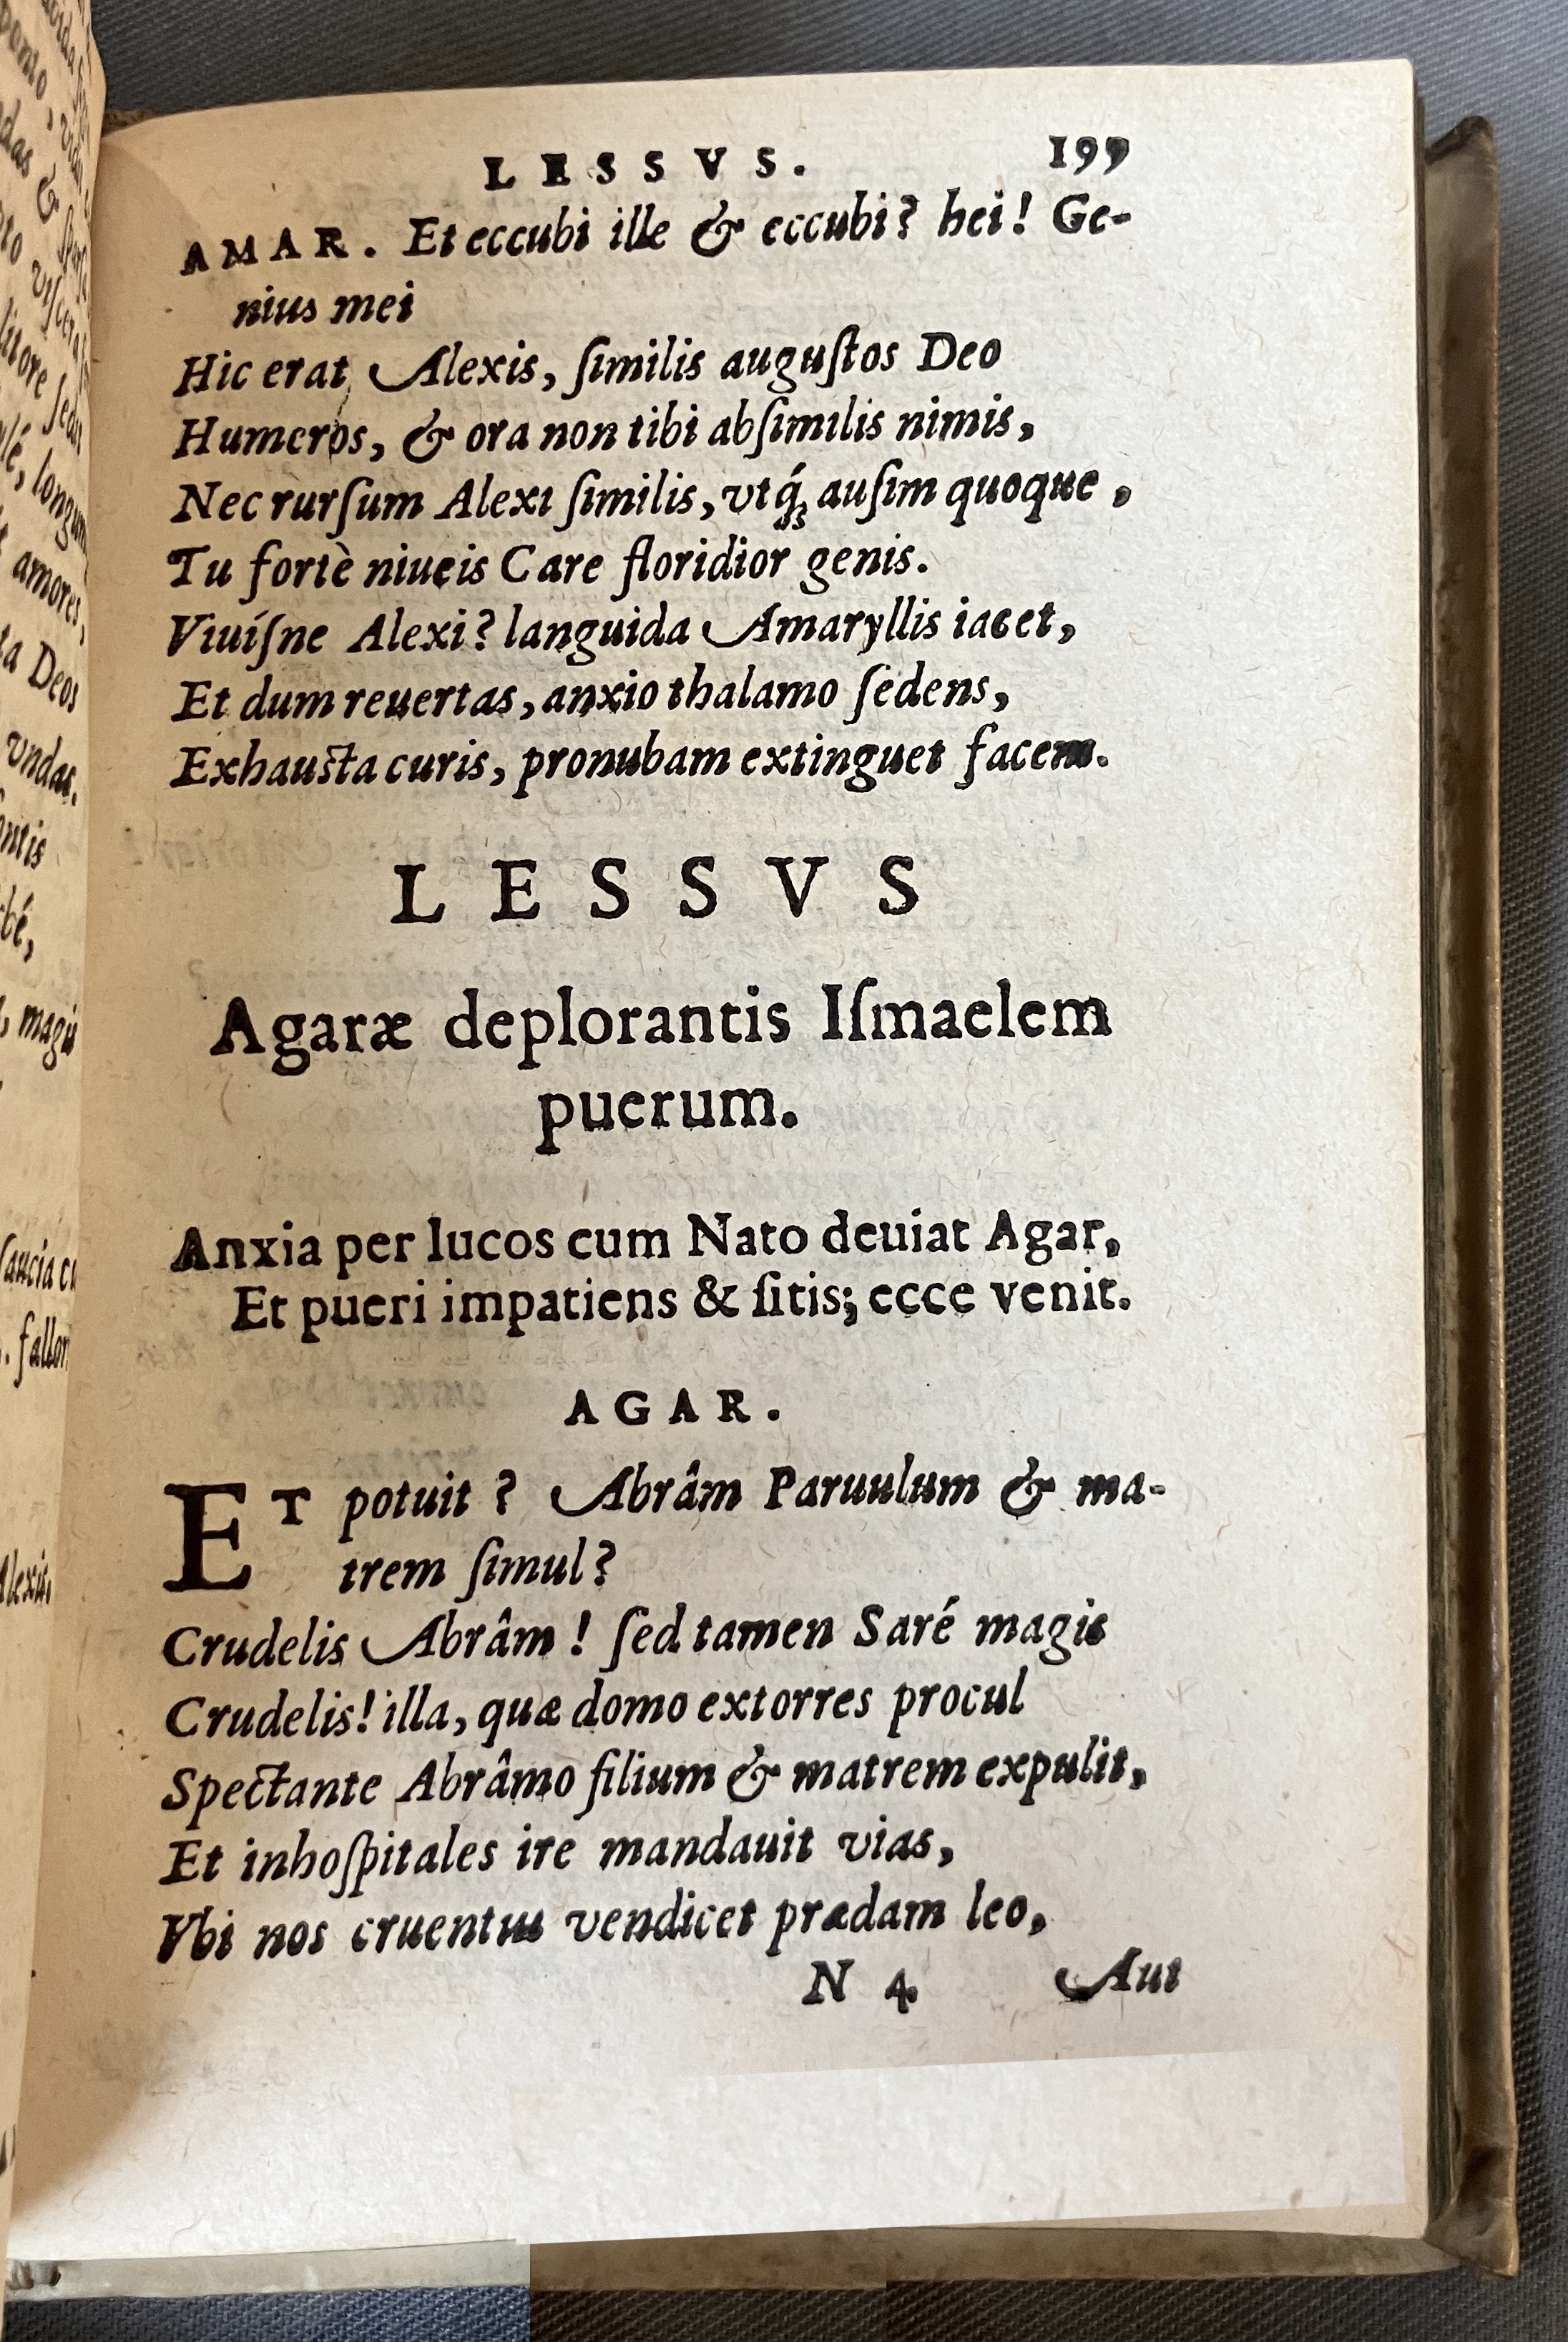 LESSVS. 199
AMAR. Et eccubi ille & eccubi? hei! Ge-
nius mei
Hic erat Alexis, ſimilis auguſtos Deo
Humeros, & ora non tibi abſimilis nimis,
Nec rurſum Alexi ſimilis, vtq́ꝫ auſim quoque,
Tu fortè niueis Care floridior genis.
Viuiſne Alexi? languida Amaryllis iacet,
Et dum reuertas, anxio thalamo ſedens,
Exhauſta curis, pronubam extinguet facem.
LESSVS
Agaræ deplorantis Iſmaelem
puerum.
Anxia per lucos cum Nato deuiat Agar,
Et pueri impatiens & ſitis; ecce venit.
AGAR.
ET potuit? Abrâm Paruulum & ma-
trem ſimul?
Crudelis Abrâm! ſed tamen Saré magis
Crudelis! illa, quæ domo extorres procul
Spectante Abrâmo filium & matrem expulit,
Et inhoſpitales ire mandauit vias,
Vbi nos cruentus vendicet prædam leo,
N 4 Aut